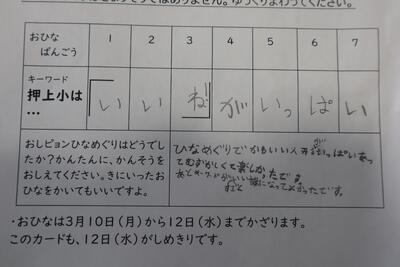 おひな
ばんごう
1 2 3 4 5 6 7
キーワード
押上小は
…
「い い ね」 が いっ ぱ い
おしピョンひなめぐりはどうでし
たか？かんたんに、かんそうを
おしえてください。きにいったお
ひなをかいてもいいですよ。
ひなめぐりで かわいい人形がいっぱいあっ
てむずかしくて楽しかったです。
あとキーワードが
になってよかったです。
・おひなは3月10日（月）から12日（水）までかざります。
このカードも、12日（水）がしめきりです。